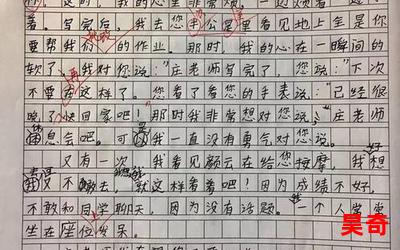 这时，我的心里非常烦，一边烦着一边
着。写完后，我去您半公室里看见地上坐是你
要帮我们的作业。那时，我的心在一瞬间的
软了，我对你说：“庄老师写完了，您说：“下次
不要在这样了。您看了看您的手表说：“已经很
晚了快回家吧！那时我非常想对您说。庄老师
息会吧。可我一直没有勇气对您说。
又有一次，我看见颜云在给您按摩，我想
我又不敢去，就这样看着吧！因为成绩不好，
不敢和同学聊天，因为没有话题。一个人常常
坐在座位发呆。
昊奇